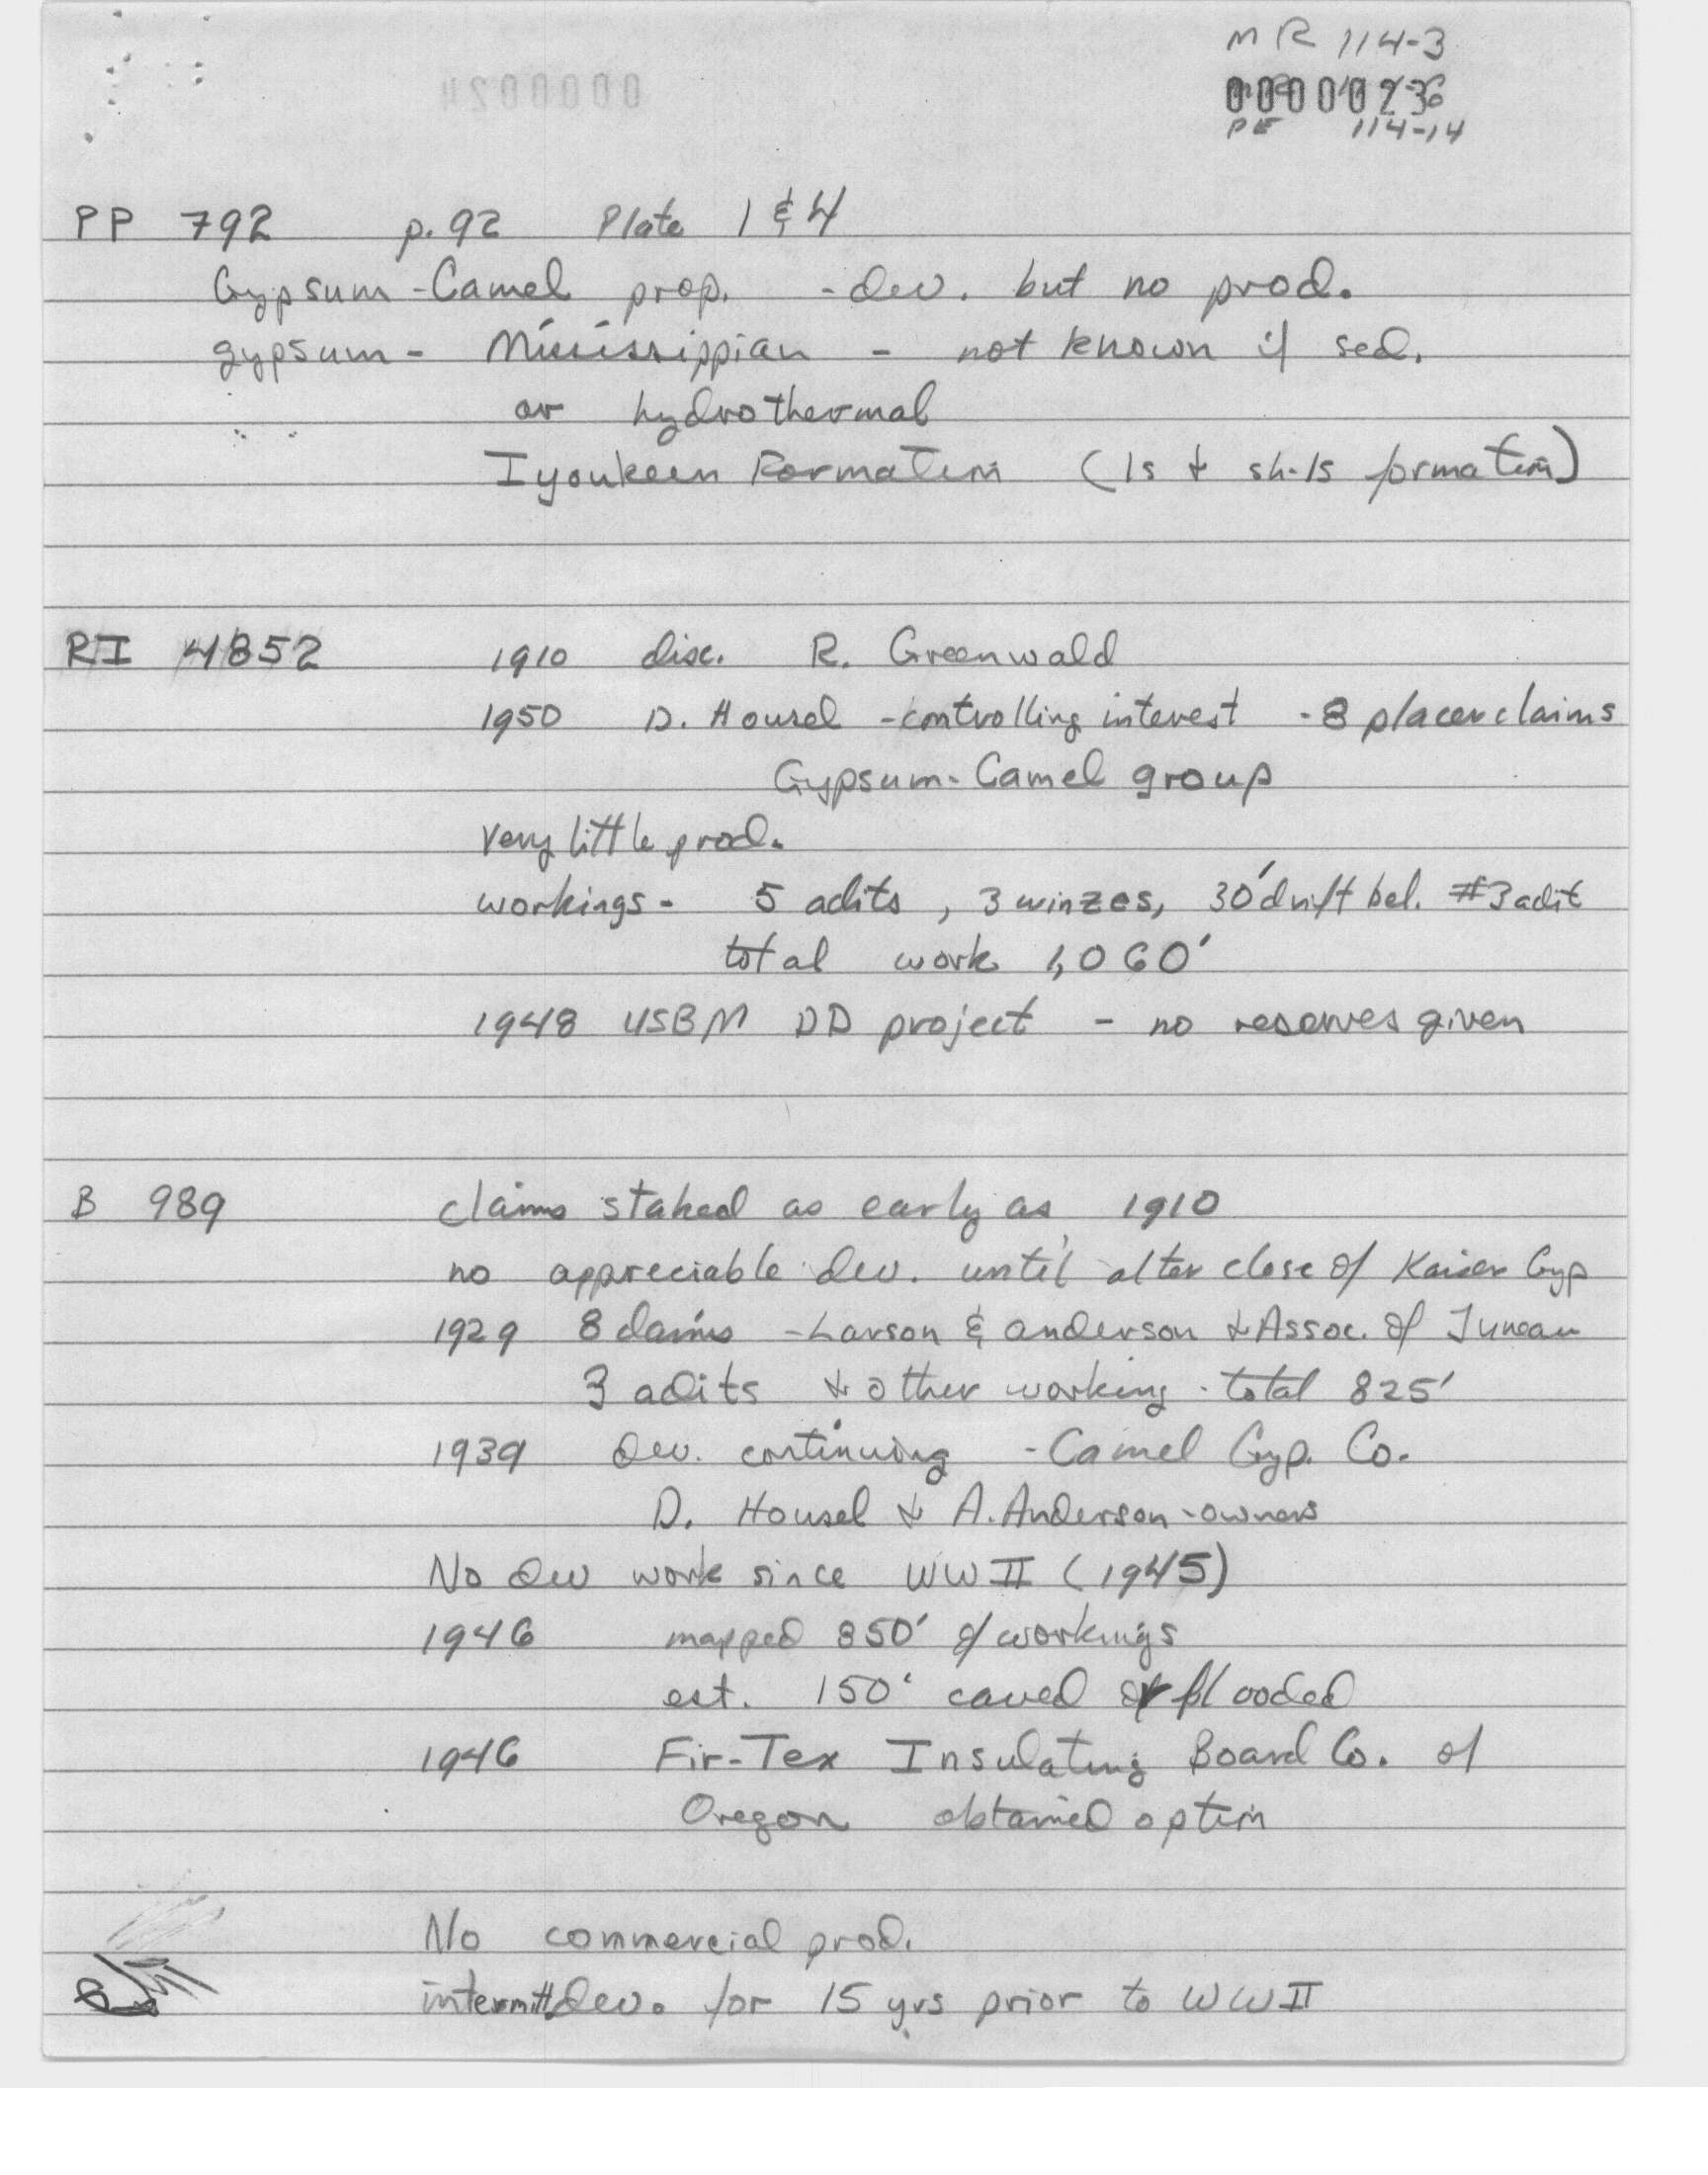 MR 114-3
PE 114-14
PP 792 p. 92 Plate 1 & 4
Gypsum-Camel prop. - dev. but no prod.
gypsum - Mississippian - not known if sed.
or hydrothermal
Iyoukeen Formation (ls & sh-ls formation)
RI 4852 1910 disc. R. Greenwald
1950 D. Housel - controlling interest - 8 placer claims
Gypsum-Camel group
very little prod.
workings - 5 adits, 3 winzes, 30' drift bel. #3 adit
total work 1,060'
1948 USBM DD project - no reserves given
B 989 claims staked as early as 1910
no appreciable dev. until after close of Kaiser Gyp
1929 8 claims - Larson & Anderson & Assoc. of Juneau
3 adits & other working - total 825'
1939 dev. continuing - Camel Gyp. Co.
D. Housel & A. Anderson - owners
No dev work since WW II (1945)
1946 mapped 850' of workings
est. 150' caved or flooded
1946 Fir-Tex Insulating Board Co. of
Oregon obtained option
No commercial prod.
intermitt dev. for 15 yrs prior to WW II